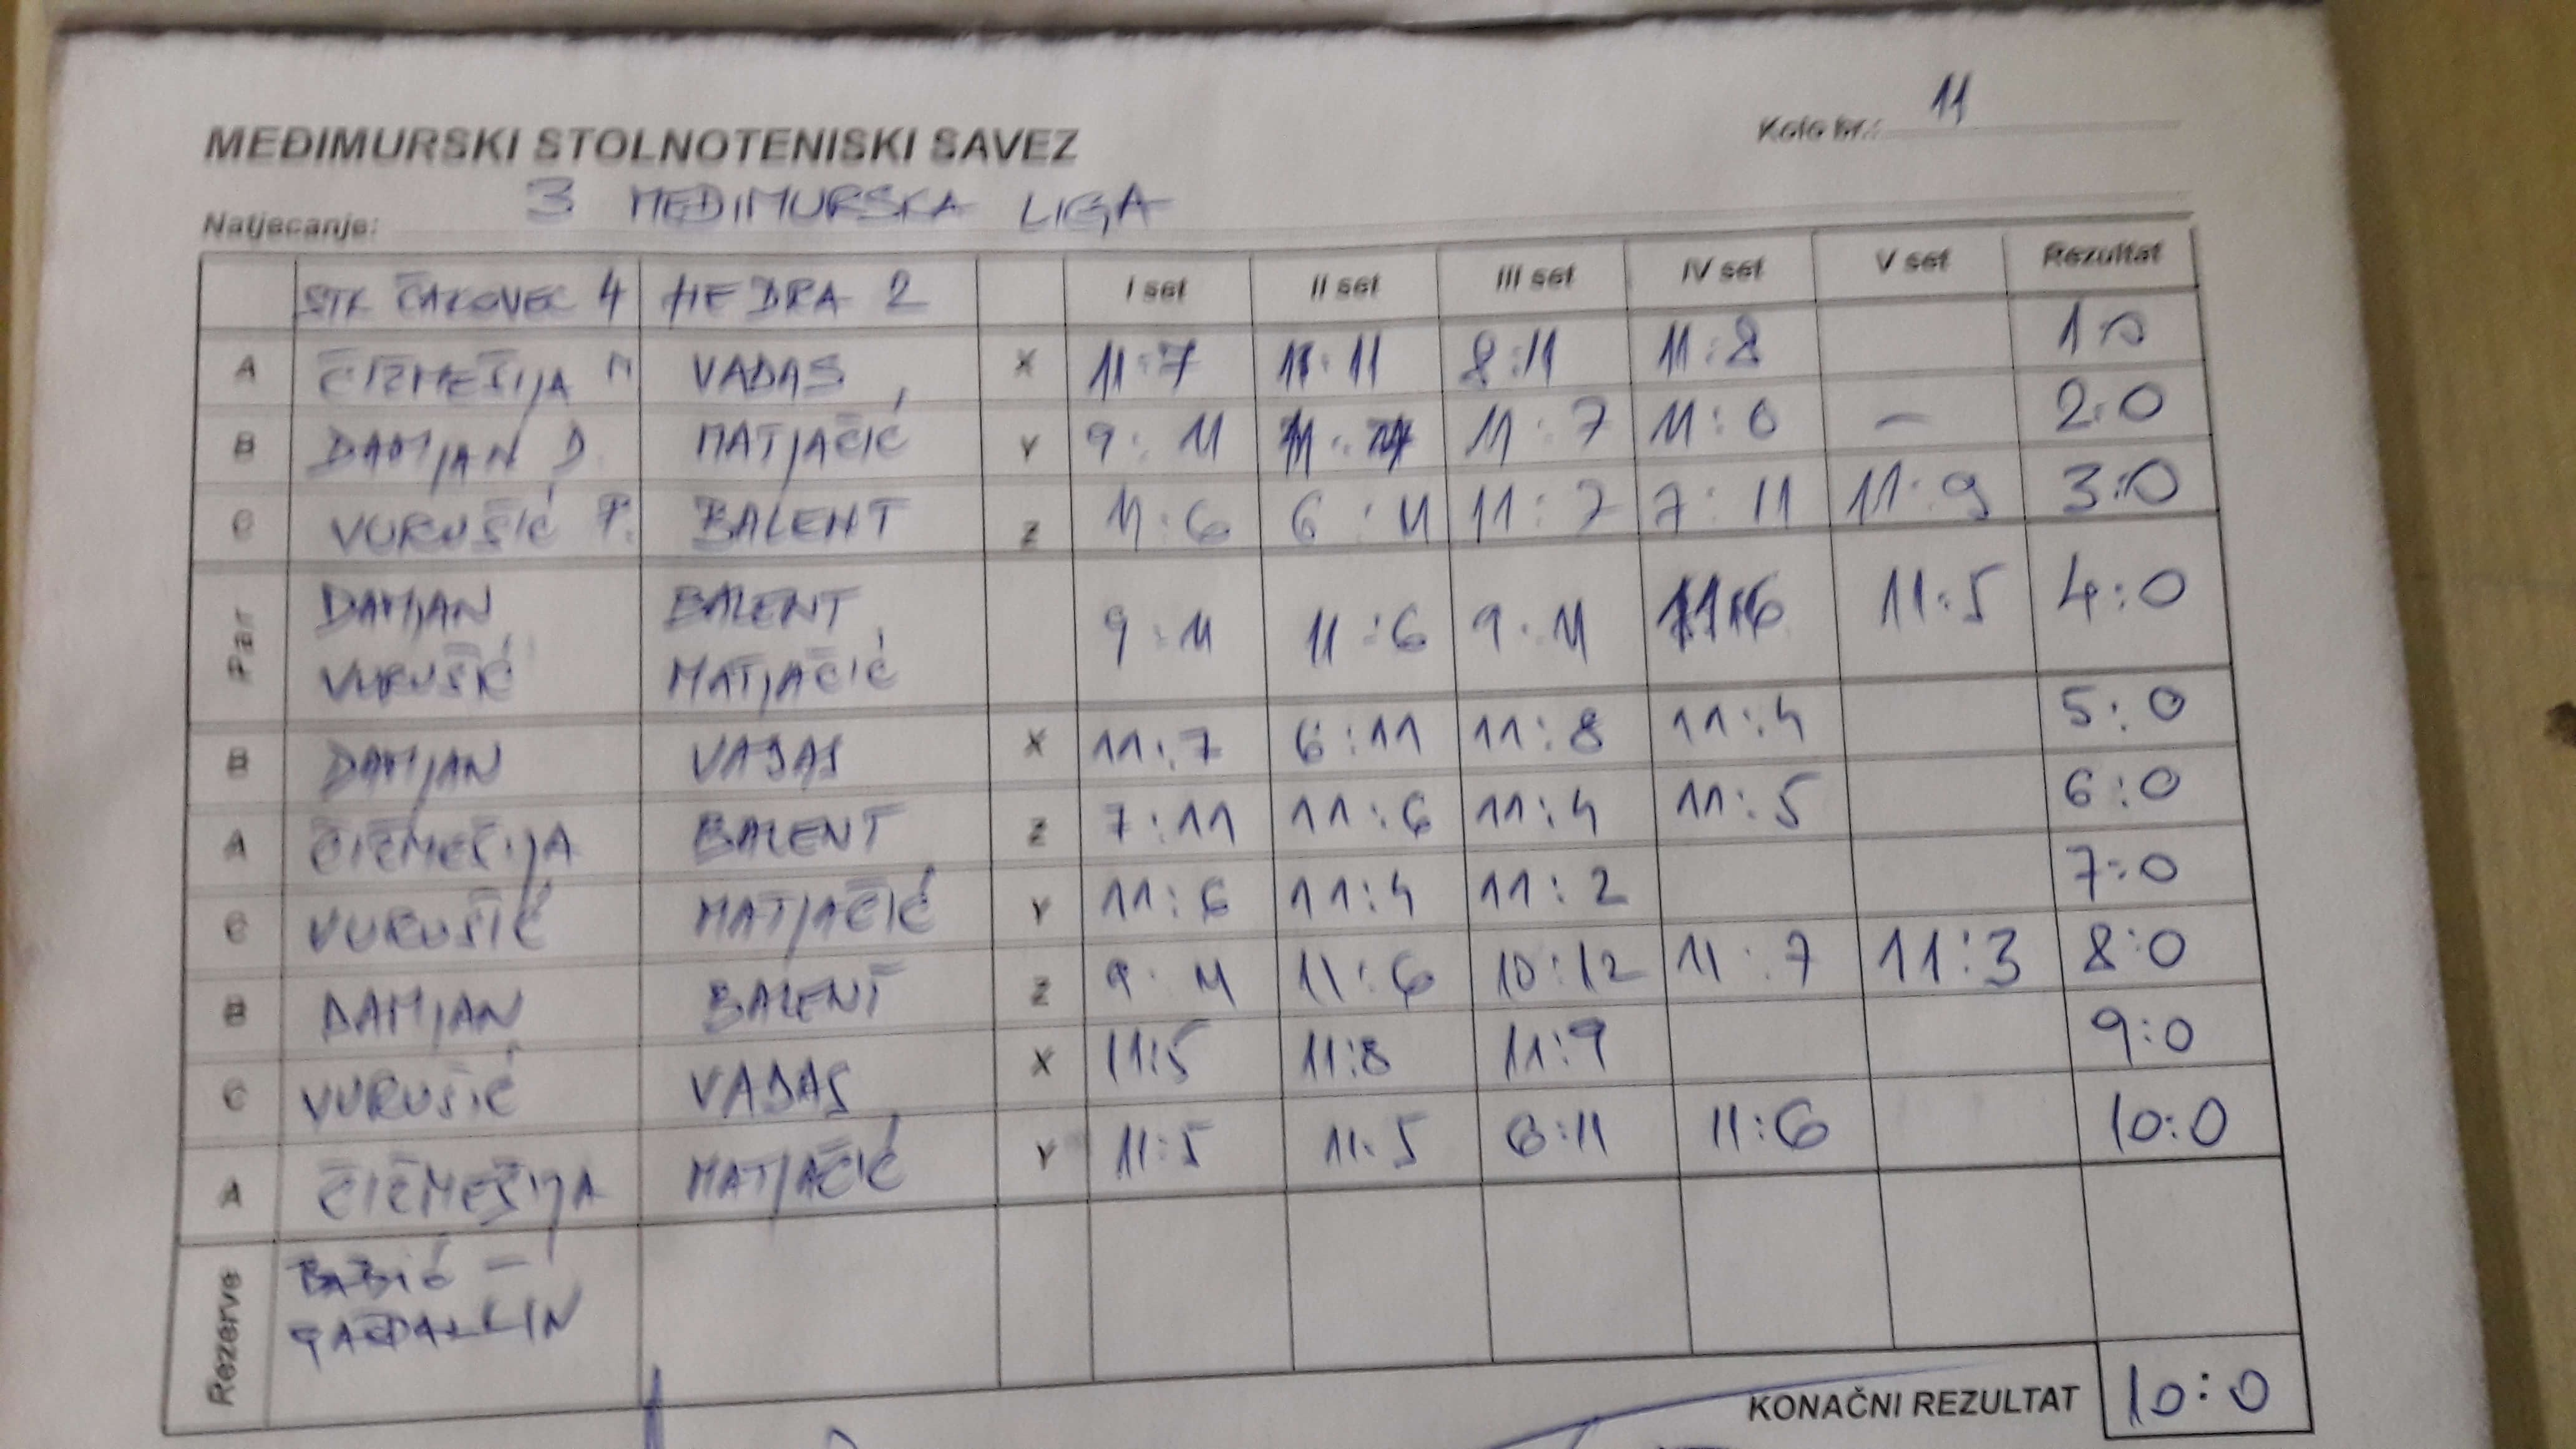 Kolo br.: 11
MEĐIMURSKI STOLNOTENISKI SAVEZ
Natjecanje: 3 MEĐIMURSKA LIGA
STK ČAKOVEC 4 HEDRA 2 I set II set III set IV set V set Rezultat
A ČIŽMEŠIJA M VADAS X 11:7 11 8:11 11:8 1:0
B DAMJAN D. MATJAČIĆ Y 9:11 11:7 11:0 - 2:0
C VURUŠIĆ P. BALENT Z 11:6 6:11 11:7 7:11 11:9 3:0
Par DAMJAN BALENT
VURUŠIĆ MATJAČIĆ 9:11 11:6 9:11 11:6 11:5 4:0
B DAMJAN VADAS X 11:7 6:11 11:8 11:4 5:0
A ČIŽMEŠIJA BALENT Z 7:11 11:6 11:4 11:5 6:0
C VURUŠIĆ MATJAČIĆ Y 11:6 11:4 11:2 7:0
B DAMJAN BALENT Z 9:11 11:6 10:12 11:7 11:3 8:0
C VURUŠIĆ VADAS X 11:5 11:8 11:9 9:0
A ČIŽMEŠIJA MATJAČIĆ Y 11:5 11:5 6:11 11:6 10:0
Rezerve BABIĆ -
KONAČNI REZULTAT 10:0